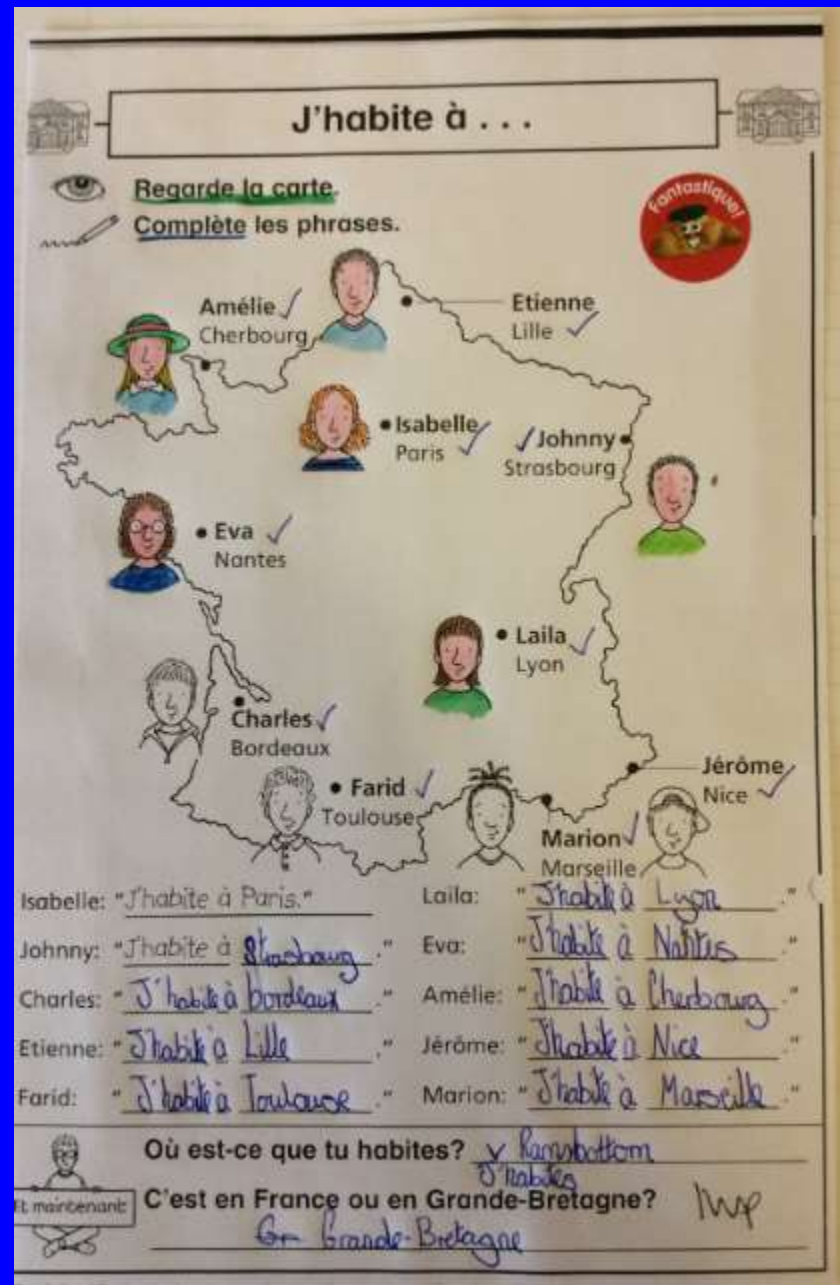 J'habite à . . .
Regarde la carte.
Complète les phrases.
Fantastique!
Amélie
Cherbourg
Etienne
Lille
Isabelle
Paris
Johnny
Strasbourg
Eva
Nantes
Laila
Lyon
Charles
Bordeaux
Farid
Toulouse
Jérôme
Nice
Marion
Marseille
Isabelle: "J'habite à Paris."
Johnny: "J'habite à Strasbourg ."
Charles: "J'habite à bordeaux ."
Etienne: "J'habite à Lille ."
Farid: "J'habite à Toulouse ."
Laila: "J'habite à Lyon ."
Eva: "J'habite à Nantes ."
Amélie: "J'habite à Cherbourg ."
Jérôme: "J'habite à Nice ."
Marion: "J'habite à Marseille ."
Où est-ce que tu habites? Ramsbottom
J'habites
Et maintenant
C'est en France ou en Grande-Bretagne?
Grande-Bretagne